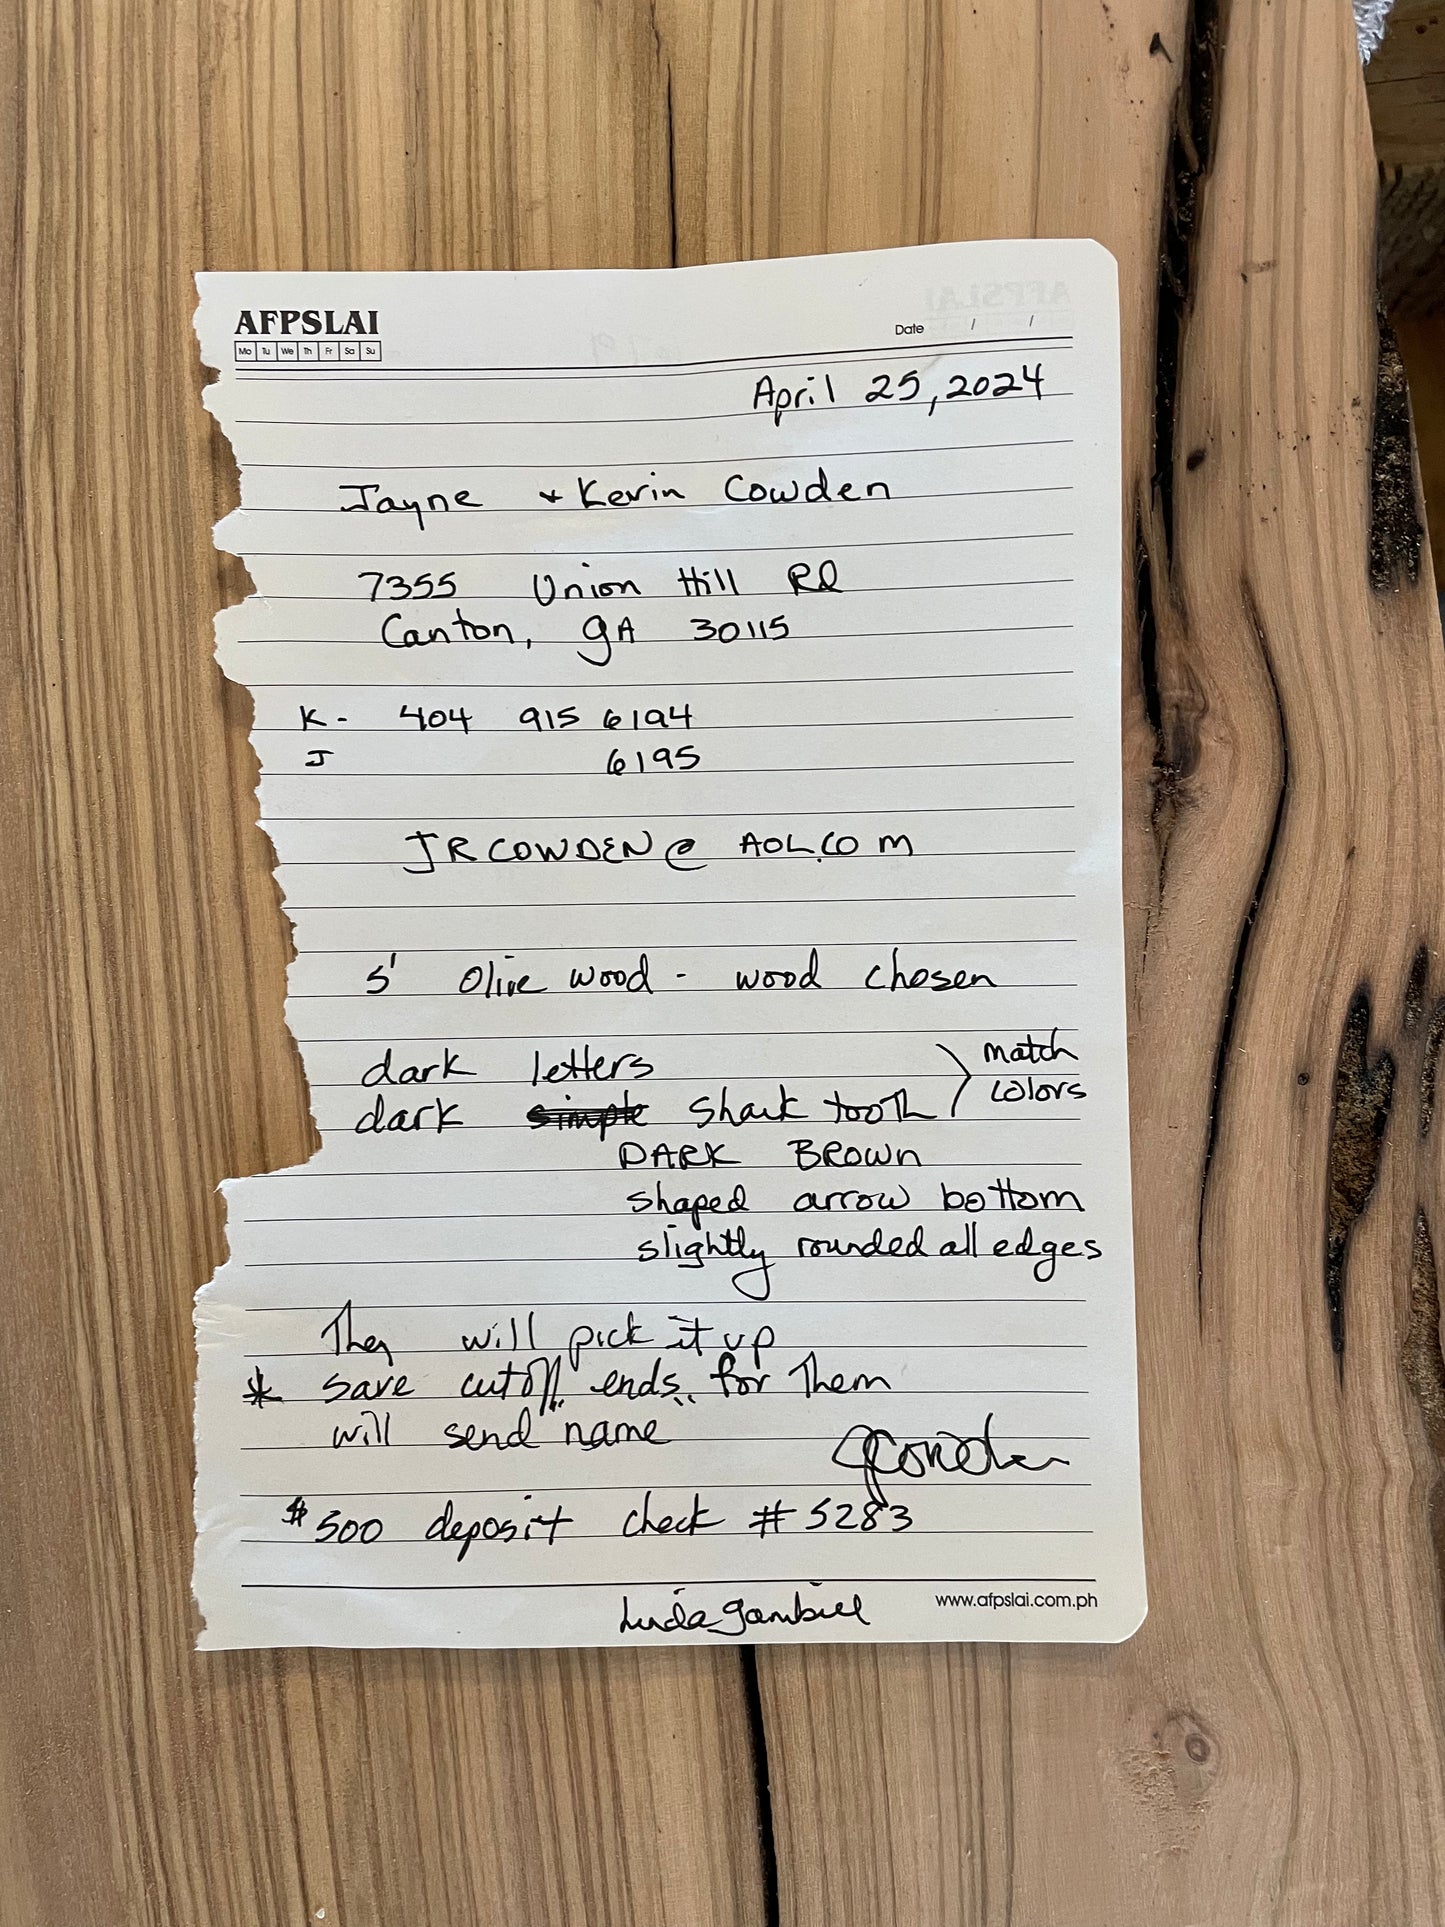 AFPSLAI
Mo Tu We Th Fr Sa Su
Date / /
April 25, 2024
Jayne + Kevin Cowden
7355 Union Hill Rd
Canton, GA 30115
K - 404 915 6194
J 6195
JRCOWDEN@AOL.COM
5' Olive wood - wood chosen
dark letters
match
colors
dark simple shark tooth
DARK BROWN
shaped arrow bottom
slightly rounded all edges
They will pick it up
* save cutoff "ends" for them
will send name
JCowden
$500 deposit check # 5283
www.afpslai.com.ph
Linda Gambill